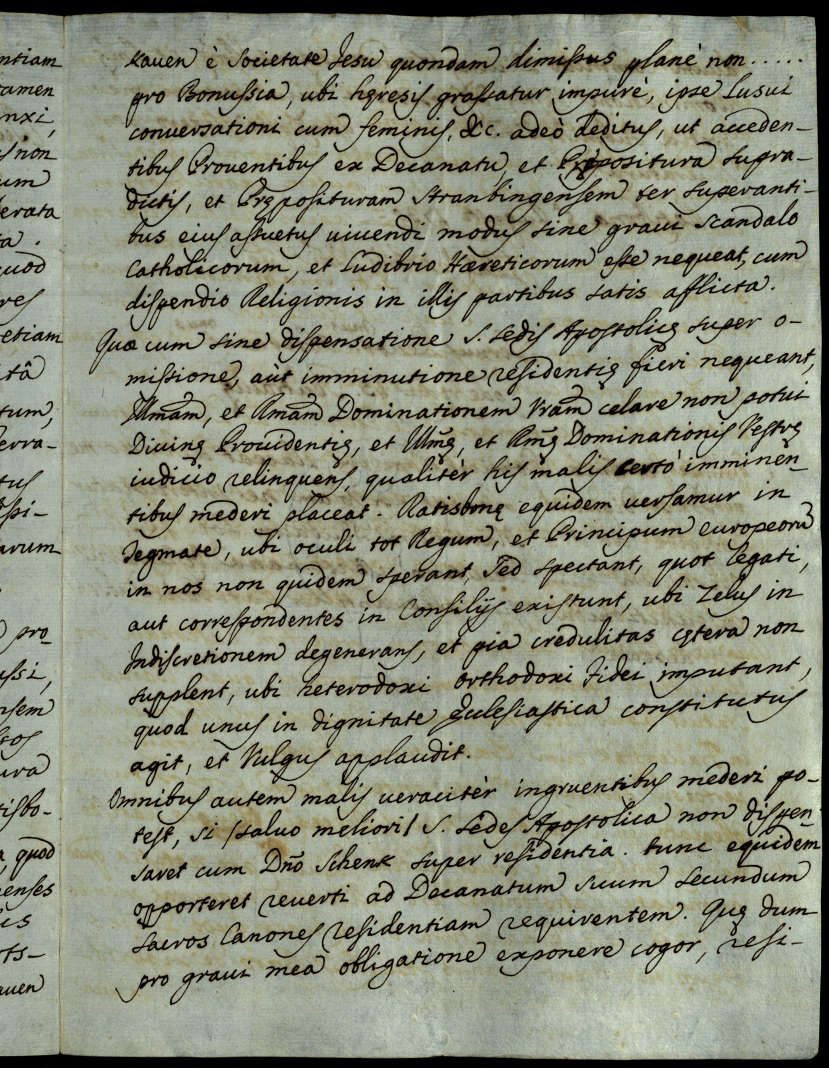 ntiam
tamen
nxi,
is non
um
erata
ta.
quod
res
etiam
itâ
tum,
erra-
tus
ssi-
arum
pro
ussi,
nsem
stos
ura
tisbo-
a, quod
nenses
cis
rts-
auen
xauen è Societate Jesu quondam dimissus planè non .....
pro Bonussia, ubi hęresis grassatur impurè, ipse Lusui
conversationi cum feminis, &c. adeò deditus, ut acceden-
tibus Proventibus ex Decanatu, et Prępositura supra-
dictis, et Pręposituram Stranbingensem ter superanti-
bus eius assuetus vivendi modus sine gravi scandalo
Catholicorum, et Ludibrio Hæreticorum esse nequeat, cum
dispendio Religionis in illis partibus satis afflicta.
Quæ cum sine dispensatione S. Sedis Apostolicę super o-
missione, aùt imminutione residentię fieri nequeant,
Illmam, et Rmam Dominationem Vram celare non potui
Divinę Providentię, et Illmę, et Rmę Dominationis Vestrę
iudicio relinquens, qualitèr his malis certò imminen-
tibus mederi placeat. Ratisbonę equidem versamur in
Tegmate, ubi oculi tot Regum, et Principum europeorũ
in nos non quidem sperant, sed spectant, quot legati,
aut correspondentes in Consilijs existunt, ubi Zelus in
Indiscretionem degenerans, et pia credulitas cętera non
supplent, ubi heterodoxi orthodoxi Fidei imputant,
quod unus in dignitate Ecclesiastica constitutus
agit, et Vulgus applaudit.
Omnibus autem malis veracitèr ingruentibus mederi po-
test, si /salvo meliori/ S. Sedes Apostolica non dispen-
saret cum Dño Schenk super residentia. tunc equidem
opporteret reverti ad Decanatum suum secundum
sacros Canones residentiam requirentem. Quę dum
pro gravi mea obligatione exponere cogor, resi-